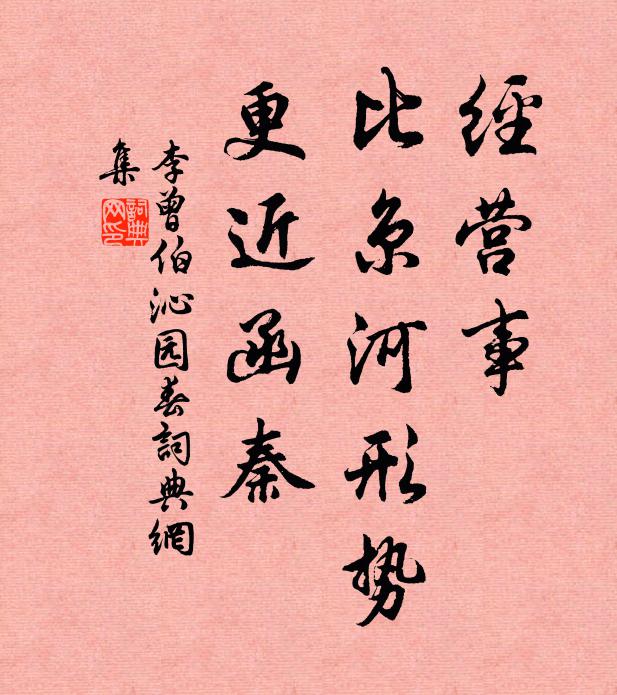 經营事
比京河形势
更近函秦
李曾伯沁园春詞典網
集
詞典
网印